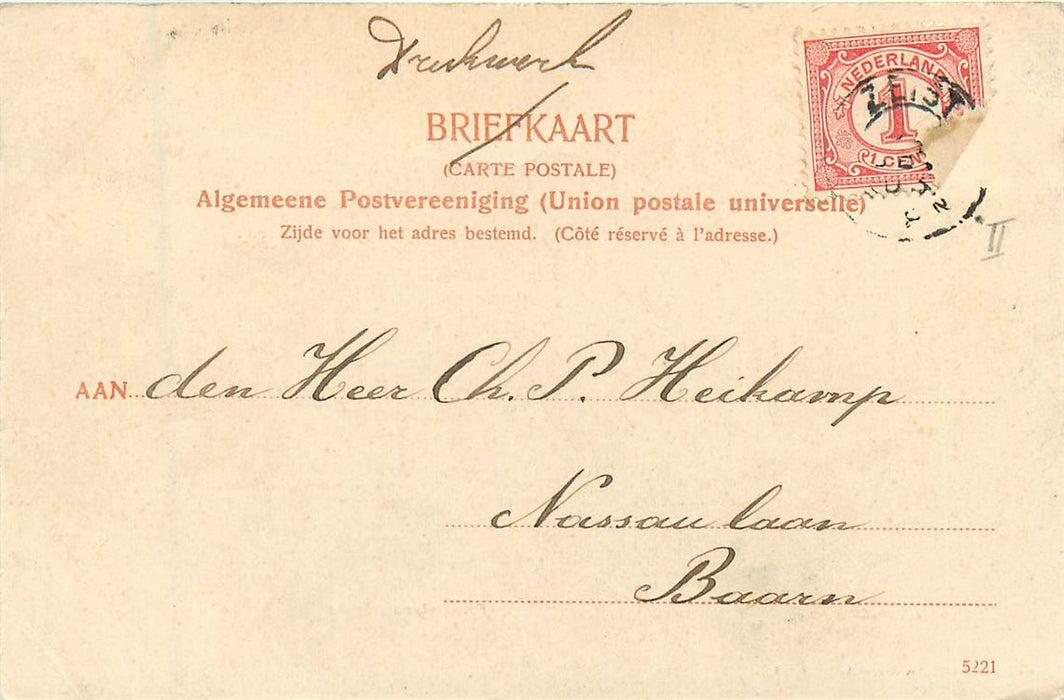 Drukwerk
NEDERLAND
1
1 CENT
ZEIST
BRIEFKAART
(CARTE POSTALE)
Algemeene Postvereeniging (Union postale universelle)
Zijde voor het adres bestemd. (Côté réservé à l'adresse.)
II
AAN den Heer Ch. P. Heikamp
Nassau laan
Baarn
5221